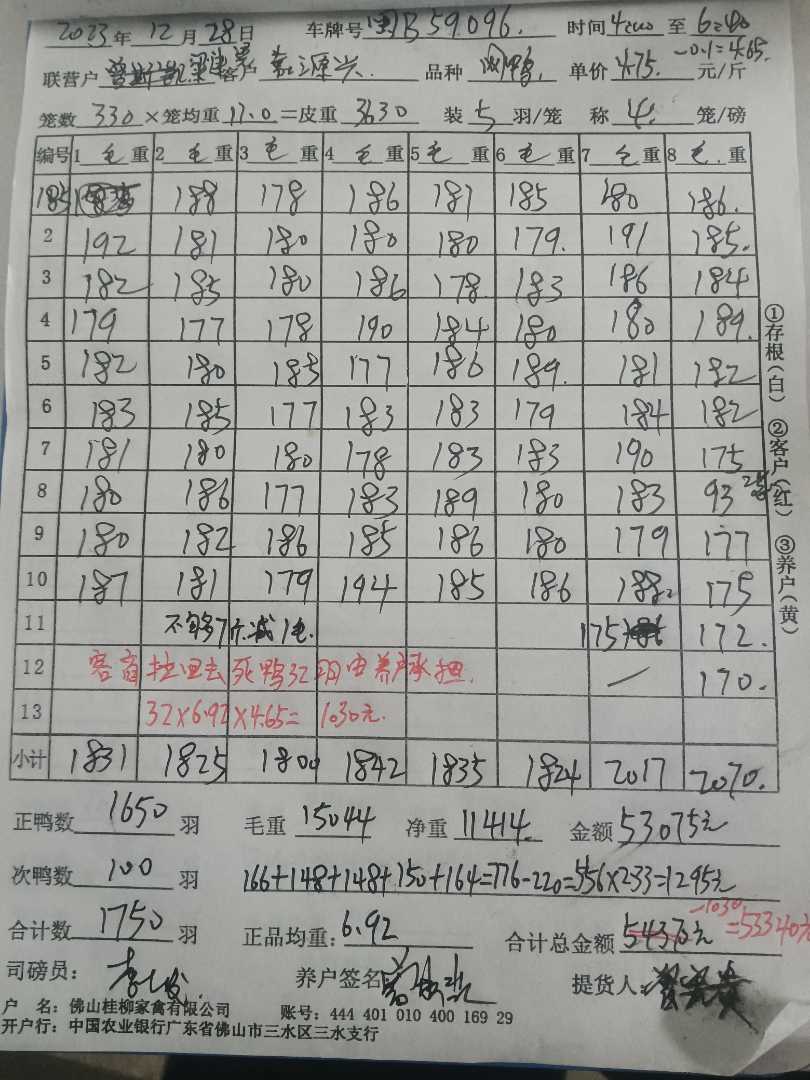 2023年 12月 28日 车牌号 闽B59096. 时间 4:00 至 6:40
联营户 客户 源兴 品种 单价 4.75. 元/斤 -0.1=4.65.
笼数 330 ×笼均重 11.0 =皮重 3630 装 5 羽/笼 称 4. 笼/磅
编号 1 毛 重 2 毛 重 3 毛 重 4 毛 重 5 毛 重 6 毛 重 7 毛 重 8 毛. 重
185 188 178 186 181 185 180 186.
2 192 181 180 180 180 179. 191 185.
3 182 185 180 186 178. 183 186 184
4 179 177 178 190 184 180 180 189.
5 182 180 185 177 186 189. 181 182
6 183 185 177 183 183 179 184 182
7 181 180 180 178 183 183 190 175
8 180 186 177 183 189 180 183 93
9 180 182 186 185 186 180 179 177
10 187 181 179 194 185 186 188 175
11 不够7斤.减1毛. 175 172.
12 客商拉回去死鸭32羽由养户承担. — 170.
13 32×6.92×4.65= 1030元.
小计 1831 1825 1800 1842 1835 1824 2017 2070.
正鸭数 1650 羽 毛重 15044 净重 11414. 金额 53075元
次鸭数 100 羽 166+148+148+150+164=776-220=556×2.33=1295元
合计数 1750 羽 正品均重: 6.92 合计总金额 54370元 -1030 =53340元
司磅员: 养户签名 提货人:
户 名: 佛山桂柳家禽有限公司 账号: 444 401 010 400 169 29
开户行: 中国农业银行广东省佛山市三水区三水支行
①存根(白) ②客户(红) ③养户(黄)